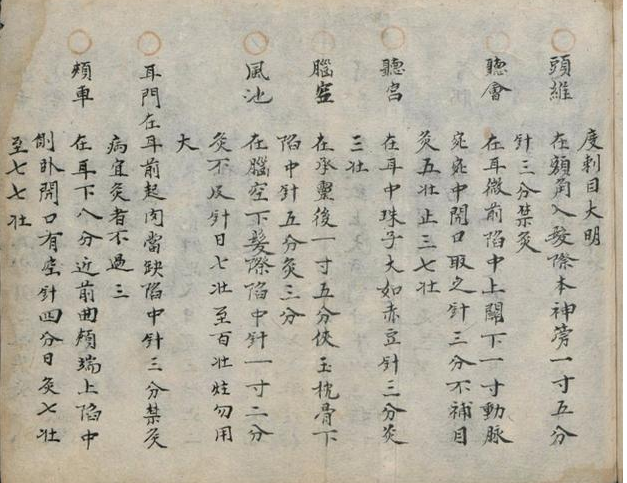 度刺目大明
頭維 在額角入髮際本神旁一寸五分
針三分禁灸
聽會 在耳微前陷中上關下一寸動脈
宛宛中開口取之針三分不補日
灸五壯止三七壯
聽宮 在耳中珠子大如赤豆針三分灸
三壯
腦空 在承靈後一寸五分俠玉枕骨下
陷中針五分灸三分
風池 在腦空下髮際陷中針一寸二分
灸不及針日七壯至百壯炷勿用
大
耳門 在耳前起肉當缺陷中針三分禁灸
病宜灸者不過三
頰車 在耳下八分近前曲頰端上陷中
側卧開口有空針四分日灸七壯
至七七壯